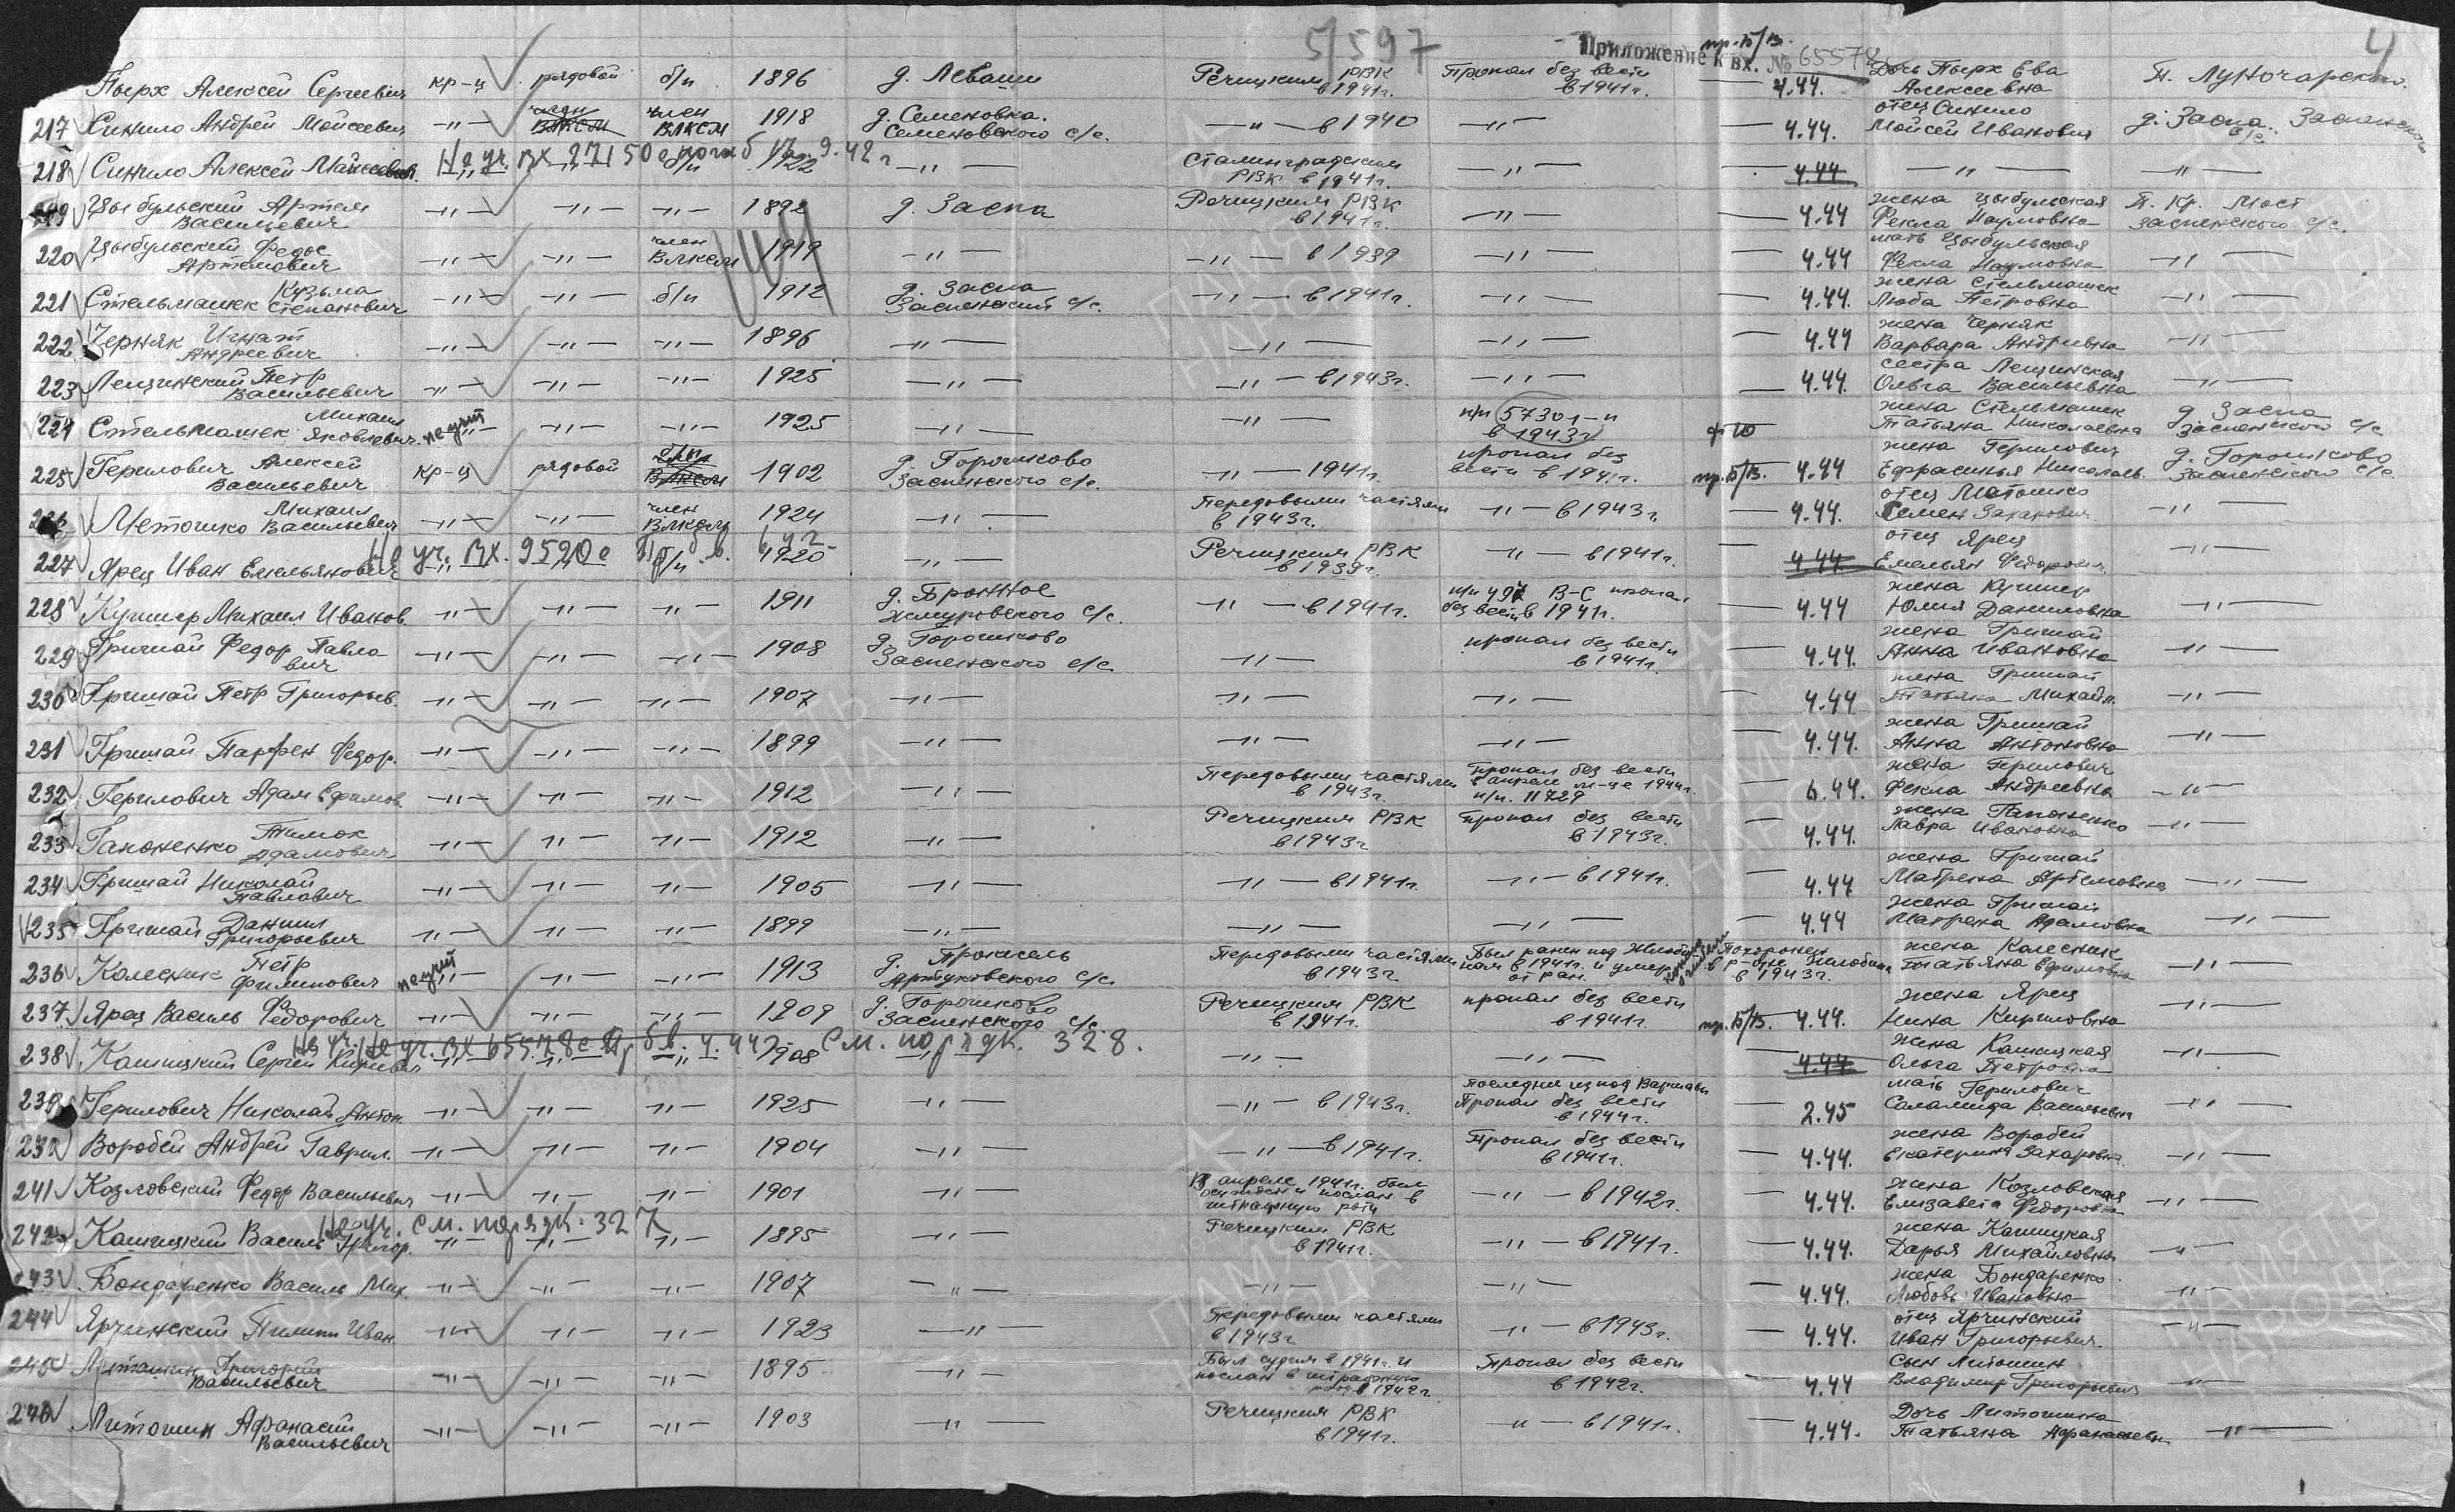 5/597 Приложение к вх. № 65578 4
пр. б/в.
Пырх Алексей Сергеевич кр-ц рядовой б/п 1896 д. Леваши Речицким РВК в 1941г. Пропал без вести в 1941г. 4.44. Дочь Пырх Ева Алексеевна П. Луночарского.
217 Синило Андрей Мойсеевич -"- член ВЛКСМ член ВЛКСМ 1918 д. Семеновка. Семеновского с/с. -"- в 1940 -"- — 4.44. отец Синило Мойсей Иванович д. Заспа. Заспенского с/с
218 Синило Алексей Мойсеевич -"- б/п 1922 -"- Сталинградским РВК в 1941г. -"- 4.44 -"- -"-
Не уч. вх 27150с погиб 9.42г
219 Цыбульский Артем Васильевич -"- -"- -"- 1892 д. Заспа Речицким РВК в 1941г. -"- — 4.44 жена Цыбульская Фекла Наумовна П. Кр. Мост Заспенского с/с.
220 Цыбульский Федос Артемович -"- -"- член ВЛКСМ 1919 -"- -"- в 1939 -"- — 4.44 мать Цыбульская Фекла Наумовна -"-
221 Стельмашек Кузьма Степанович -"- -"- б/п 1912 д. Заспа Заспенский с/с. -"- в 1941г. -"- — 4.44. жена Стельмашек Люба Петровна -"-
222 Черняк Игнат Андреевич -"- -"- -"- 1896 -"- -"- -"- — 4.44 жена Черняк Варвара Андреевна -"-
223 Лещинский Петр Васильевич -"- -"- -"- 1925 -"- -"- в 1943г. -"- — 4.44. сестра Лещинская Ольга Васильевна -"-
224 Стельмашек Михаил Яковлевич -"- -"- -"- 1925 -"- -"- п/п 57301-п в 1943г жена Стельмашек Татьяна Николаевна д Заспа Заспенского с/с
225 Герилович Алексей Васильевич кр-ц рядовой ВЛКСМ 1902 д. Горошково Заспенского с/с. -"- 1941г. пропал без вести в 1941г. пр. б/в. 4.44 жена Герилович Ефрасинья Николаев. д. Горошково Заспенского с/с.
226 Метошко Михаил Васильевич -"- -"- член ВЛКСМ 1924 -"- Передовыми частями в 1943г. -"- в 1943г. — 4.44. отец Матошко Семен Захарович -"-
227 Ярец Иван Емельянович -"- -"- б/п 1920 -"- Речицким РВК в 1939г. -"- в 1941г. — 4.44 отец Ярец Емельян Федорович -"-
Не уч. вх. 9520с
228 Кушнер Михаил Иванов. -"- -"- -"- 1911 д. Бронное Жмуровского с/с. -"- в 1941г. п/п 497 В-С пропал без вести в 1941г. — 4.44 жена Кушнер Юлия Даниловна -"-
229 Гришай Федор Павлович -"- -"- -"- 1908 д. Горошково Заспенского с/с. -"- пропал без вести в 1941г. — 4.44. жена Гришай Анна Ивановна -"-
230 Гришай Петр Григорьев. -"- -"- -"- 1907 -"- -"- -"- — 4.44 жена Гришай Татьяна Михайл. -"-
231 Гришай Парфен Федор. -"- -"- -"- 1899 -"- -"- -"- 4.44. жена Гришай Анна Антоновна -"-
232 Герилович Адам Ефимов. -"- -"- -"- 1912 -"- Передовыми частями в 1943г. Пропал без вести в апреле м-це 1944г. п/п. 11729 — 6.44. жена Герилович Фекла Андреевна -"-
233 Гапоненко Тимох Адамович -"- -"- -"- 1912 -"- Речицким РВК в 1943г Пропал без вести в 1943г. — 4.44. жена Гапоненко Лавра Ивановна -"-
234 Гришай Николай Павлович -"- -"- -"- 1905 -"- -"- в 1941г. -"- в 1941г. — 4.44 жена Гришай Матрена Артемовна -"-
235 Гришай Даниил Григорьевич -"- -"- -"- 1899 -"- -"- -"- — 4.44 жена Гришай Матрена Адамовна -"-
236 Колесник Петр Филипович -"- -"- -"- 1913 д. Артуковского с/с. Передовыми частями в 1943г. Был ранен под Жлобином в 1941г. и умер от ран. Похоронен в р-оне Жлобина в 1943г. жена Колесник Татьяна Ефимовна -"-
237 Ярец Василь Федорович -"- -"- -"- 1909 д. Горошково Заспенского с/с. Речицким РВК в 1941г. пропал без вести в 1941г. пр. б/в. 4.44. жена Ярец Нина Кириловна -"-
238 Кашицкий Сергей -"- -"- -"- 1908 -"- -"- -"- — 4.44. жена Кашицкая Ольга Петровна -"-
Не уч. вх 65578с Пр б.в. 4.44 см. порядк. 328.
239 Герилович Николай Антон. -"- -"- -"- 1925 -"- -"- в 1943г. последние из под Варшавы Пропал без вести в 1944г. — 2.45 мать Герилович Саламида Васильевна -"-
Воробей Андрей Гаврил. -"- -"- -"- 1904 -"- -"- в 1941г. Пропал без вести в 1941г. — 4.44. жена Воробей Екатерина Захаровна -"-
241 Козловский Федор Васильевич -"- -"- -"- 1901 -"- В апреле 1941г. был осужден и послан в штрафную роту -"- в 1942г. — 4.44. жена Козловская Елизавета Федоровна -"-
242 Кашицкий Василь Григор. -"- -"- -"- 1895 -"- Речицким РВК в 1941г. -"- в 1941г. — 4.44. жена Кашицкая Дарья Михайловна -"-
Не уч. см. порядк. 327
243 Бондаренко Василь Мих. -"- -"- -"- 1907 -"- -"- -"- — 4.44. жена Бондаренко Любовь Ивановна -"-
244 Ярчинский Пилип Иван. -"- -"- -"- 1923 -"- Передовыми частями в 1943г -"- в 1943г. — 4.44. отец Ярчинский Иван Григорьевич -"-
245 Литошин Григорий Васильевич -"- -"- -"- 1895 -"- Был судим в 1941г. и послан в штрафную роту в 1942г. Пропал без вести в 1942г. 4.44 сын Литошин Владимир Григорьевич -"-
246 Литошин Афанасий Васильевич -"- -"- -"- 1903 -"- Речицким РВК в 1941г. -"- в 1941г. — 4.44. Дочь Литошина Татьяна Афанасьевн -"-
ПАМЯТЬ НАРОДА